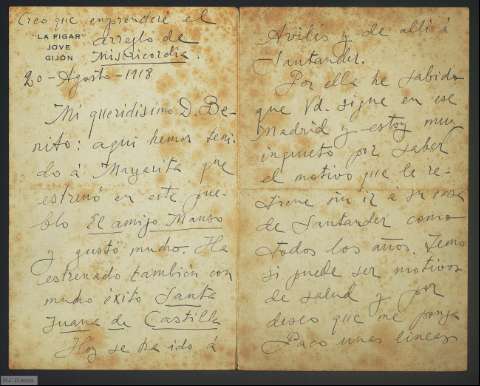 Creo que emprenderé el
arreglo de
Misericordia.
"LA FIGAR"
JOVE
GIJÓN
20-Agosto-1918
Mi queridisimo D. Be-
nito: aqui hemos teni-
do á Margarita que
estrenó en este pue-
blo El amigo Manso
y gustó mucho. Ha
estrenado tambien con
mucho exito Santa
Juana de Castilla
Hoy se ha ido á
Avilés y de alli á
Santander.
Por ella he sabido
que Vd. sigue en ese
Madrid y estoy muy
inquieto por saber
el motivo que le re-
tiene sin ir a su casa
de Santander como
todos los años. Temo
si puede ser motivos
de salud y por
deseo que me ponga
Paco unas lineas